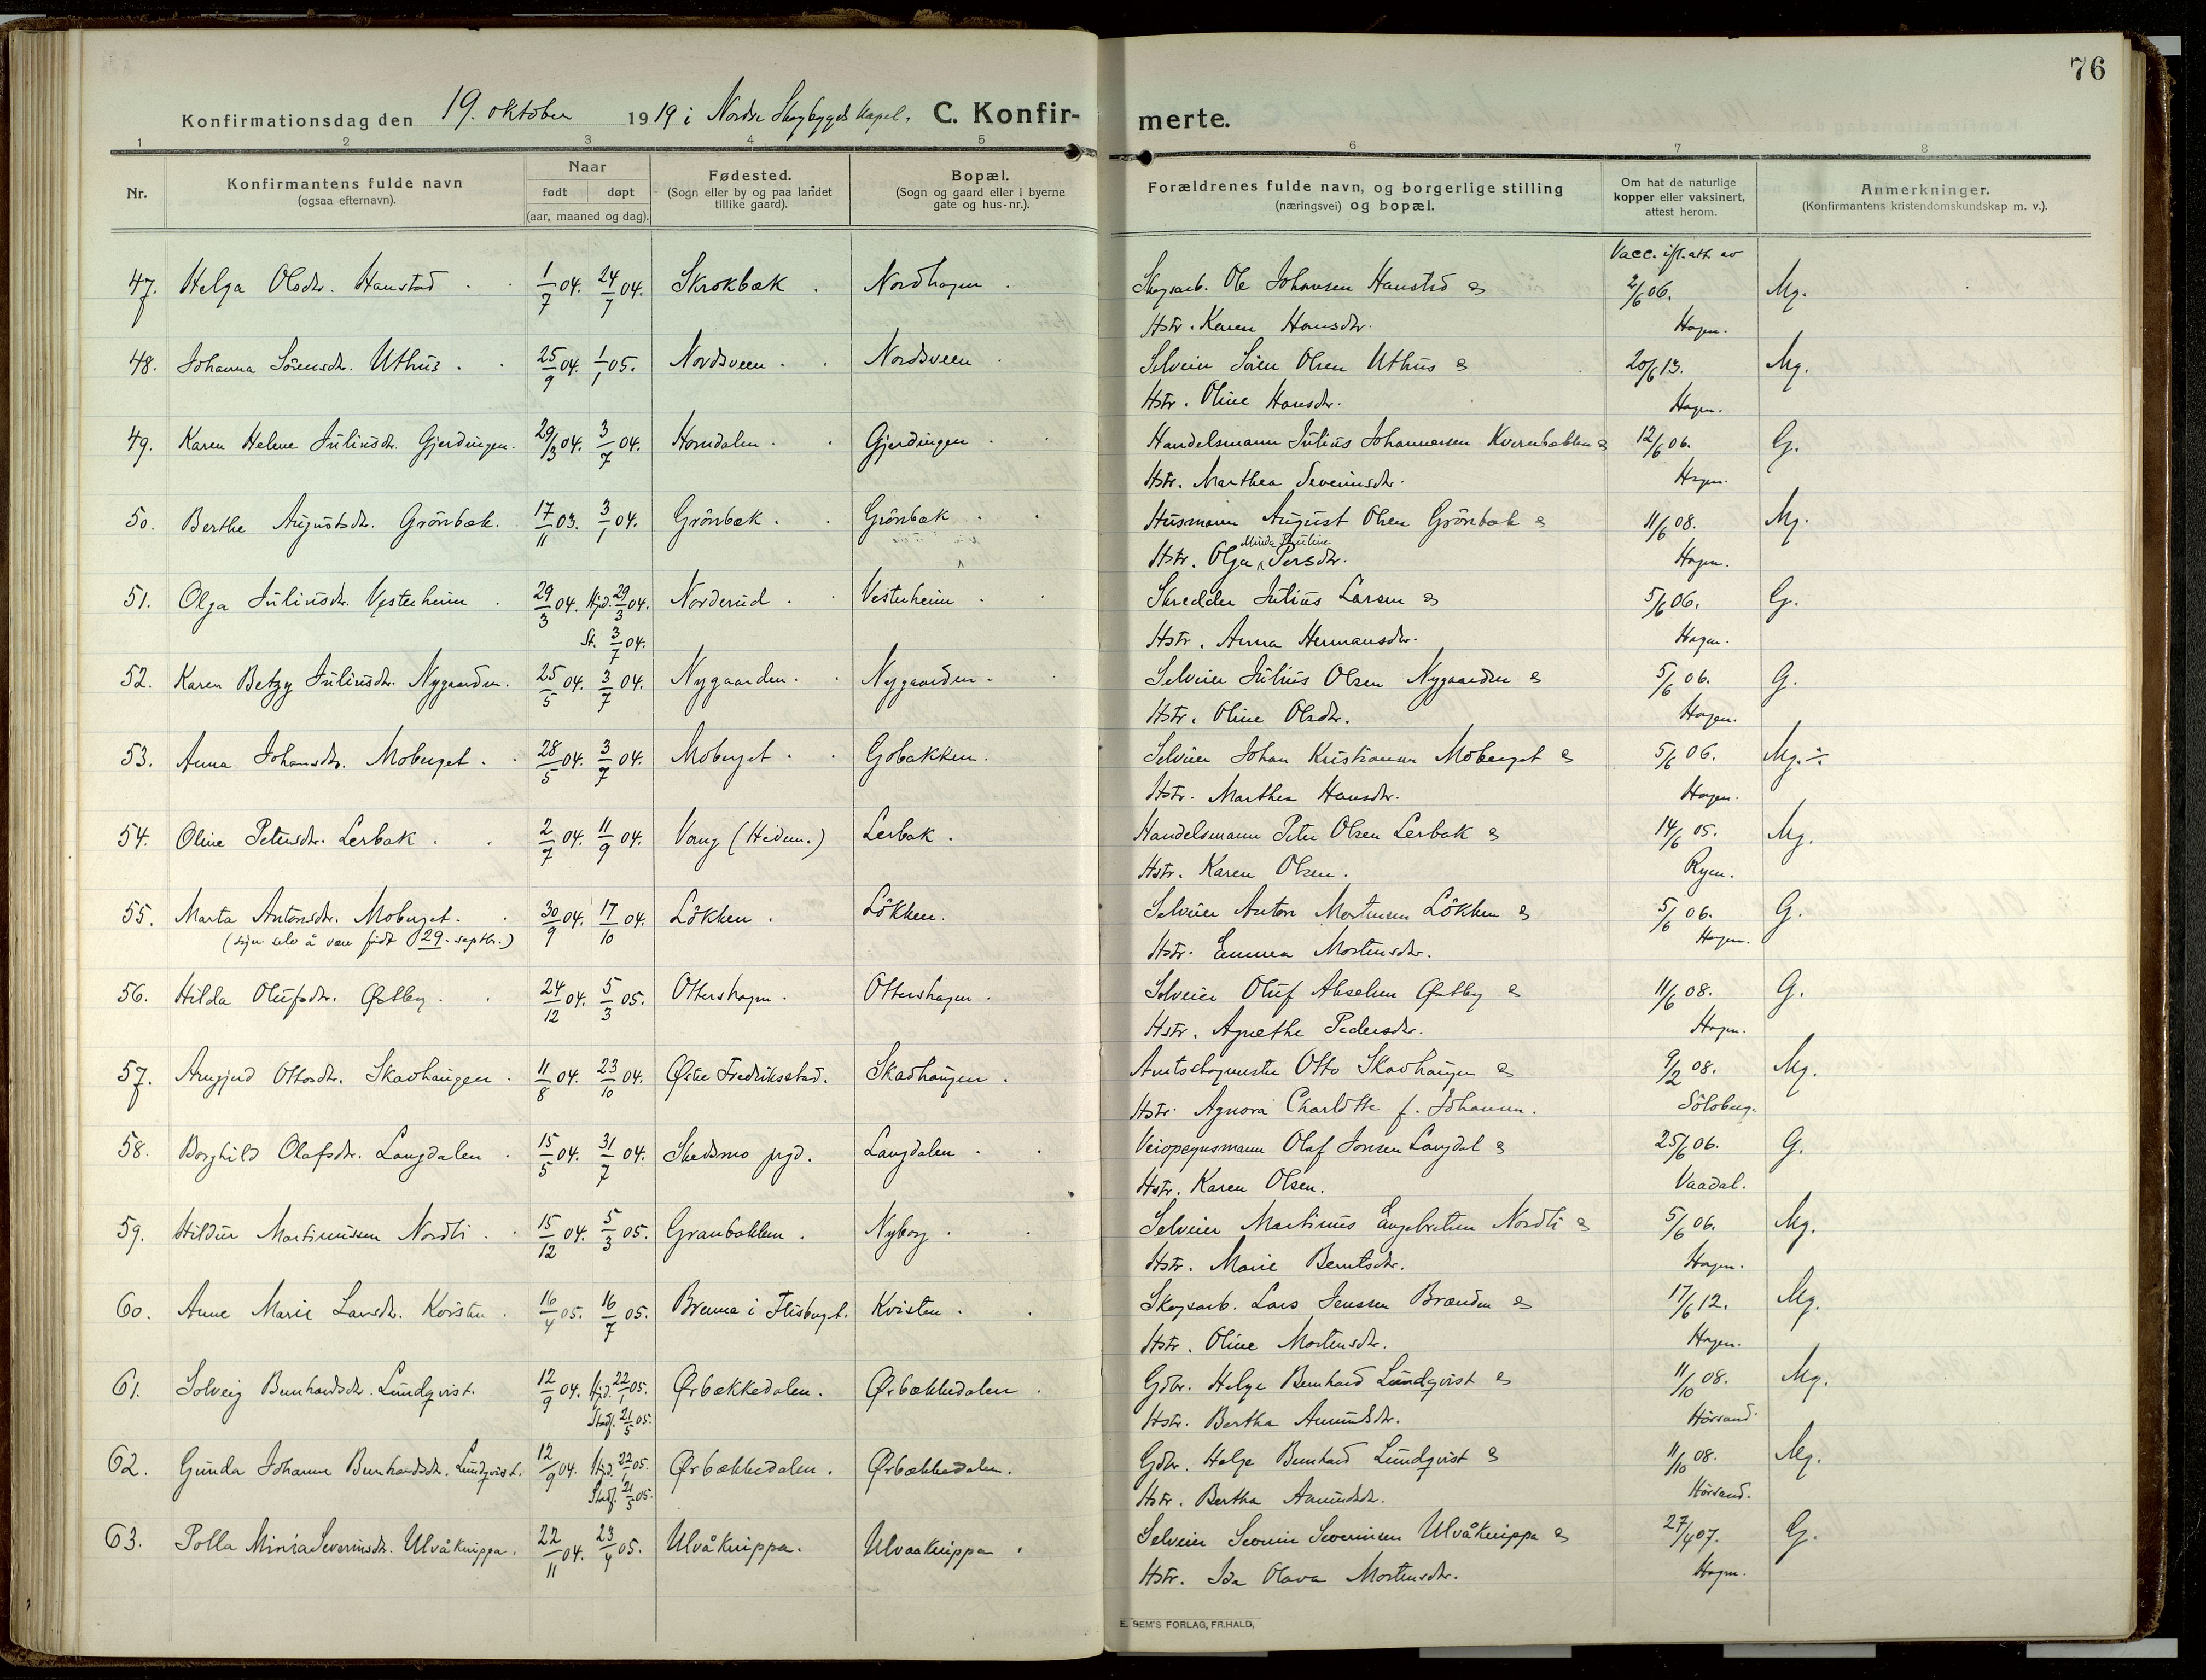 76
Konfirmationsdag den 19. oktober 1919 i Nordre Skogbygds kapel. C. Konfirmerte.
1 2 3 4 5 6 7 8
Nr.
Konfirmantens fulde navn
(ogsaa efternavn).
Naar
født døpt
(aar, maaned og dag).
Fødested.
(Sogn eller by og paa landet
tillike gaard).
Bopæl.
(Sogn og gaard eller i byerne
gate og hus-nr.).
Forældrenes fulde navn, og borgerlige stilling
(næringsvei) og bopæl.
Om hat de naturlige
kopper eller vaksinert,
attest herom.
Anmerkninger.
(Konfirmantens kristendomskundskap m. v.).
Vacc. ifl. att. av
47. Helga Olsdtr. Hanstad 1/7 04. 24/7 04. Skrokbæk. Nordhagen. Skogsarb. Ole Johansen Hanstad & 2/6 06. Mg.
Hstr. Karen Hansdtr. Hagen.
48. Johanna Sörensdtr. Uthus. 25/9 04. 1/1 05. Nordsveen. Nordsveen. Selveier Sören Olsen Uthus & 20/6 13. Mg.
Hstr. Oline Hansdtr. Hagen.
49. Karen Helene Juliusdtr. Gjerdingen. 29/3 04. 3/7 04. Homdalen. Gjerdingen. Handelsmann Julius Johannesen Kvernbækken & 12/6 06. G.
Hstr. Marthea Severinsdtr. Hagen.
50. Berthe Augustsdtr. Grönbæk. 17/11 03. 3/1 04. Grönbæk. Grönbæk. Husmann August Olsen Grönbæk & 11/6 08. Mg.
Hstr. Olga Minda Pauline Persdtr. Hagen.
51. Olga Juliusdtr. Vesterheim 29/3 04. Hjd. 29/3 04. Norderud. Vesterheim. Skredder Julius Larsen & 5/6 06. G.
St. 3/7 04. Hstr. Anna Hermansdtr. Hagen.
52. Karen Betzy Juliusdtr. Nygaarden. 25/5 04. 3/7 04. Nygaarden. Nygaarden. Selveier Julius Olsen Nygaarden & 5/6 06. G.
Hstr. Oline Olsdtr. Hagen.
53. Anna Johansdtr. Moberget. 28/5 04. 3/7 04. Moberget. Gobakken. Selveier Johan Kristiansen Moberget & 5/6 06. Mg. ÷
Hstr. Marthea Hansdtr. Hagen.
54. Oline Petersdtr. Lerbæk. 2/7 04. 11/9 04. Vang (Hedem.) Lerbæk. Handelsmann Peter Olsen Lerbæk & 14/6 05. Mg.
Hstr. Karen Olsen. Ryen.
55. Marta Antonsdtr. Moberget. 30/9 04. 17/10 04. Lökken. Lökken. Selveier Anton Mortensen Lökken & 5/6 06. G.
(sier selv å være født 29. septbr.) Hstr. Emma Mortensdtr. Hagen.
56. Hilda Olufsdtr. Østby. 24/12 04. 5/3 05. Ottershagen. Ottershagen. Selveier Oluf Abselon Østby & 11/6 08. G.
Hstr. Agnethe Pedersdtr. Hagen.
57. Arngjerd Ottosdtr. Skavhaugen. 11/8 04. 23/10 04. Østre Fredriksstad. Skavhaugen. Amtsdagmester Otto Skavhaugen & 9/2 08. Mg.
Hstr. Agnora Charlotte f. Johansen. Sölsberg.
58. Borghild Olafsdtr. Langdalen. 15/5 04. 31/7 04. Skedsmo prgd. Langdalen. Veiopsynsmann Olaf Jonsen Langdal & 25/6 06. G.
Hstr. Karen Olsen. Vaadal.
59. Hildur Martinussen Nordli. 15/12 04. 5/3 05. Granbakken. Nyborg. Selveier Martinus Engebretsen Nordli & 5/6 06. Mg.
Hstr. Marie Berntsdtr. Hagen.
60. Anne Marie Larsdtr. Kvisten. 16/4 05. 16/7 05. Brenna i Flisberget. Kvisten. Skogsarb. Lars Jenssen Brænden & 17/6 12. Mg.
Hstr. Oline Mortensdtr. Hagen.
61. Solveig Bernhardsdtr. Lundqvist. 12/9 04. Hjd. 22/1 05. Ørbækkedalen. Ørbækkedalen. Gdbr. Helge Bernhard Lundqvist & 11/10 08. Mg.
Stadf. 21/5 05. Hstr. Bertha Amundsdtr. Hörsand.
62. Gunda Johanne Bernhardsdtr. Lundqvist. 12/9 04. Hjd. 22/1 05. Ørbækkedalen. Ørbækkedalen. Gdbr. Helge Bernhard Lundqvist & 11/10 08. Mg.
Stadf. 21/5 05. Hstr. Bertha Amundsdtr. Hörsand.
63. Polla Minia Severinsdtr. Ulvåknippa. 22/11 04. 23/4 05. Ulvåknippa. Ulvaaknippa. Selveier Severin Severinsen Ulvåknippa & 27/4 07. G.
Hstr. Ida Olava Mortensdtr. Hagen.
E. SEM'S FORLAG, FR.HALD,